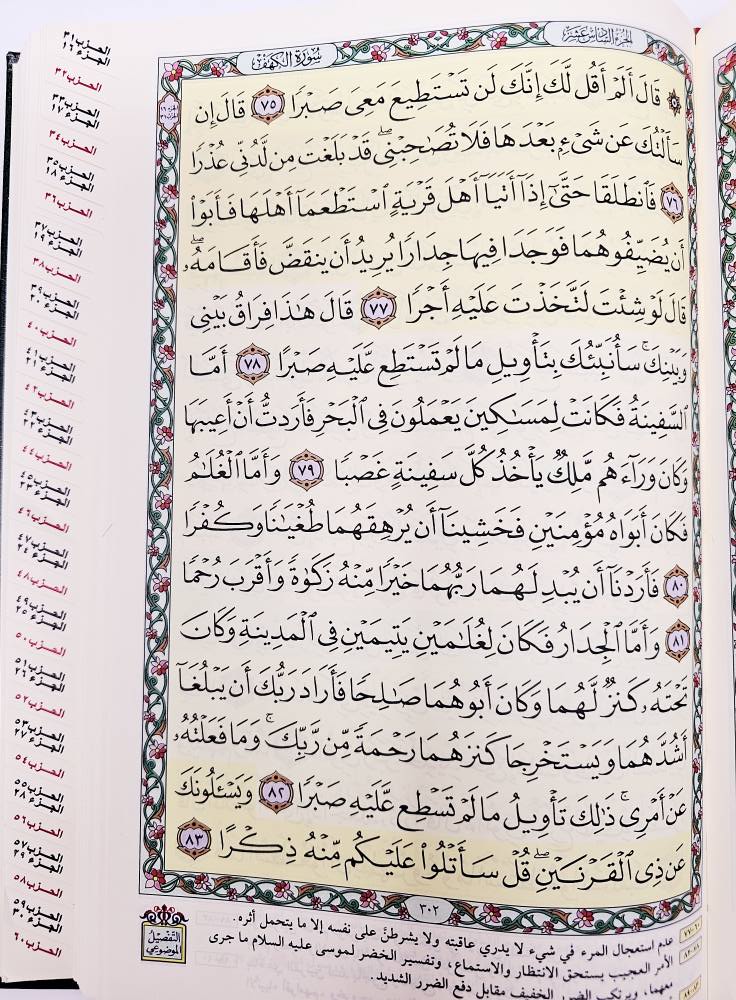 الجزء السادس عشر
سورة الكهف
۞ قَالَ أَلَمْ أَقُل لَّكَ إِنَّكَ لَن تَسْتَطِيعَ مَعِىَ صَبْرًا ٧٥ قَالَ إِن
سَأَلْتُكَ عَن شَىْءٍۭ بَعْدَهَا فَلَا تُصَٰحِبْنِى ۖ قَدْ بَلَغْتَ مِن لَّدُنِّى عُذْرًا
٧٦ فَٱنطَلَقَا حَتَّىٰٓ إِذَآ أَتَيَآ أَهْلَ قَرْيَةٍ ٱسْتَطْعَمَآ أَهْلَهَا فَأَبَوْا۟
أَن يُضَيِّفُوهُمَا فَوَجَدَا فِيهَا جِدَارًا يُرِيدُ أَن يَنقَضَّ فَأَقَامَهُۥ ۖ
قَالَ لَوْ شِئْتَ لَتَّخَذْتَ عَلَيْهِ أَجْرًا ٧٧ قَالَ هَٰذَا فِرَاقُ بَيْنِى
وَبَيْنِكَ ۚ سَأُنَبِّئُكَ بِتَأْوِيلِ مَا لَمْ تَسْتَطِع عَّلَيْهِ صَبْرًا ٧٨ أَمَّا
ٱلسَّفِينَةُ فَكَانَتْ لِمَسَٰكِينَ يَعْمَلُونَ فِى ٱلْبَحْرِ فَأَرَدتُّ أَنْ أَعِيبَهَا
وَكَانَ وَرَآءَهُم مَّلِكٌ يَأْخُذُ كُلَّ سَفِينَةٍ غَصْبًا ٧٩ وَأَمَّا ٱلْغُلَٰمُ
فَكَانَ أَبَوَاهُ مُؤْمِنَيْنِ فَخَشِينَآ أَن يُرْهِقَهُمَا طُغْيَٰنًا وَكُفْرًا
٨٠ فَأَرَدْنَآ أَن يُبْدِلَهُمَا رَبُّهُمَا خَيْرًا مِّنْهُ زَكَوٰةً وَأَقْرَبَ رُحْمًا
٨١ وَأَمَّا ٱلْجِدَارُ فَكَانَ لِغُلَٰمَيْنِ يَتِيمَيْنِ فِى ٱلْمَدِينَةِ وَكَانَ
تَحْتَهُۥ كَنزٌ لَّهُمَا وَكَانَ أَبُوهُمَا صَٰلِحًا فَأَرَادَ رَبُّكَ أَن يَبْلُغَآ
أَشُدَّهُمَا وَيَسْتَخْرِجَا كَنزَهُمَا رَحْمَةً مِّن رَّبِّكَ ۚ وَمَا فَعَلْتُهُۥ
عَنْ أَمْرِى ۚ ذَٰلِكَ تَأْوِيلُ مَا لَمْ تَسْطِع عَّلَيْهِ صَبْرًا ٨٢ وَيَسْـَٔلُونَكَ
عَن ذِى ٱلْقَرْنَيْنِ ۖ قُلْ سَأَتْلُوا۟ عَلَيْكُم مِّنْهُ ذِكْرًا ٨٣
٣٠٢
التفصيل
الموضوعي
عدم استعجال المرء في شيء لا يدري عاقبته ولا يشرطنَّ على نفسه إلا ما يتحمل أثره.
الأمر العجيب يستحق الانتظار والاستماع، وتفسير الخضر لموسى عليه السلام ما جرى
معهما، ويرتكب الضرر الخفيف مقابل دفع الضرر الشديد.
الحزب ٣١
الجزء ١٦
الحزب ٣٢
الحزب ٣٣
الجزء ١٧
الحزب ٣٤
الحزب ٣٥
الجزء ١٨
الحزب ٣٦
الحزب ٣٧
الجزء ١٩
الحزب ٣٨
الحزب ٣٩
الجزء ٢٠
الحزب ٤٠
الحزب ٤١
الجزء ٢١
الحزب ٤٢
الحزب ٤٣
الجزء ٢٢
الحزب ٤٤
الحزب ٤٥
الجزء ٢٣
الحزب ٤٦
الحزب ٤٧
الجزء ٢٤
الحزب ٤٨
الحزب ٤٩
الجزء ٢٥
الحزب ٥٠
الحزب ٥١
الجزء ٢٦
الحزب ٥٢
الحزب ٥٣
الجزء ٢٧
الحزب ٥٤
الحزب ٥٥
الجزء ٢٨
الحزب ٥٦
الحزب ٥٧
الجزء ٢٩
الحزب ٥٨
الحزب ٥٩
الجزء ٣٠
الحزب ٦٠